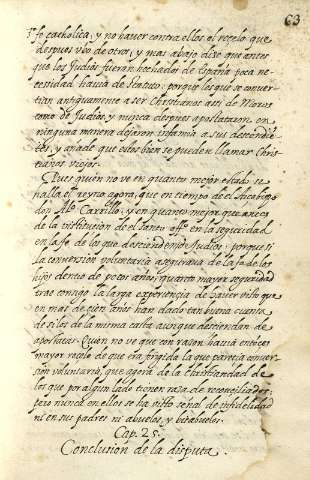 63
fe catholica, y no haver contra ellos el recelo que
despues vbo de otros, y mas abajo dize que antes
que los Judios fueran hechados de España poca ne-
cesidad havia de Statuto: porque los que se conver-
tian antiguamente a ser Christianos assi de Moros
como de Judios, y nunca despues apostataron en
ninguna manera dejaron infamia a sus descendiē-
tes, y añade que ellos bien se pueden llamar Chris-
tianos viejos.
Pues quien no ve en quanto mejor estado se
halla el reyno agora, que en tiempo del Arçobispo
don Alº Carrillo, y en quanto mejor que antes
de la institucion de el santo offº en la seguridad
en la fe de los que descienden de Judios: porque si
la conversion voluntaria asegurava de la fe de los
hijos dentro de pocos años, quanto mayor seguridad
trae consigo la larga experiencia de haver visto que
en mas de cien años han dado tan buena cuenta
de si los de la misma casta aunque desciendan de
apostatas. Quien no ve que con razon havia entōces
mayor recelo de que era fingida la que parecia conver-
sion voluntaria, que agora de la Christiandad de
los que por algun lado tienen raza de reconciliados,
pero nunca en ellos se ha visto señal de infidelidad
ni en sus padres ni abuelos, y bisabuelos.
Cap. 25.
Conclusion de la disputa.